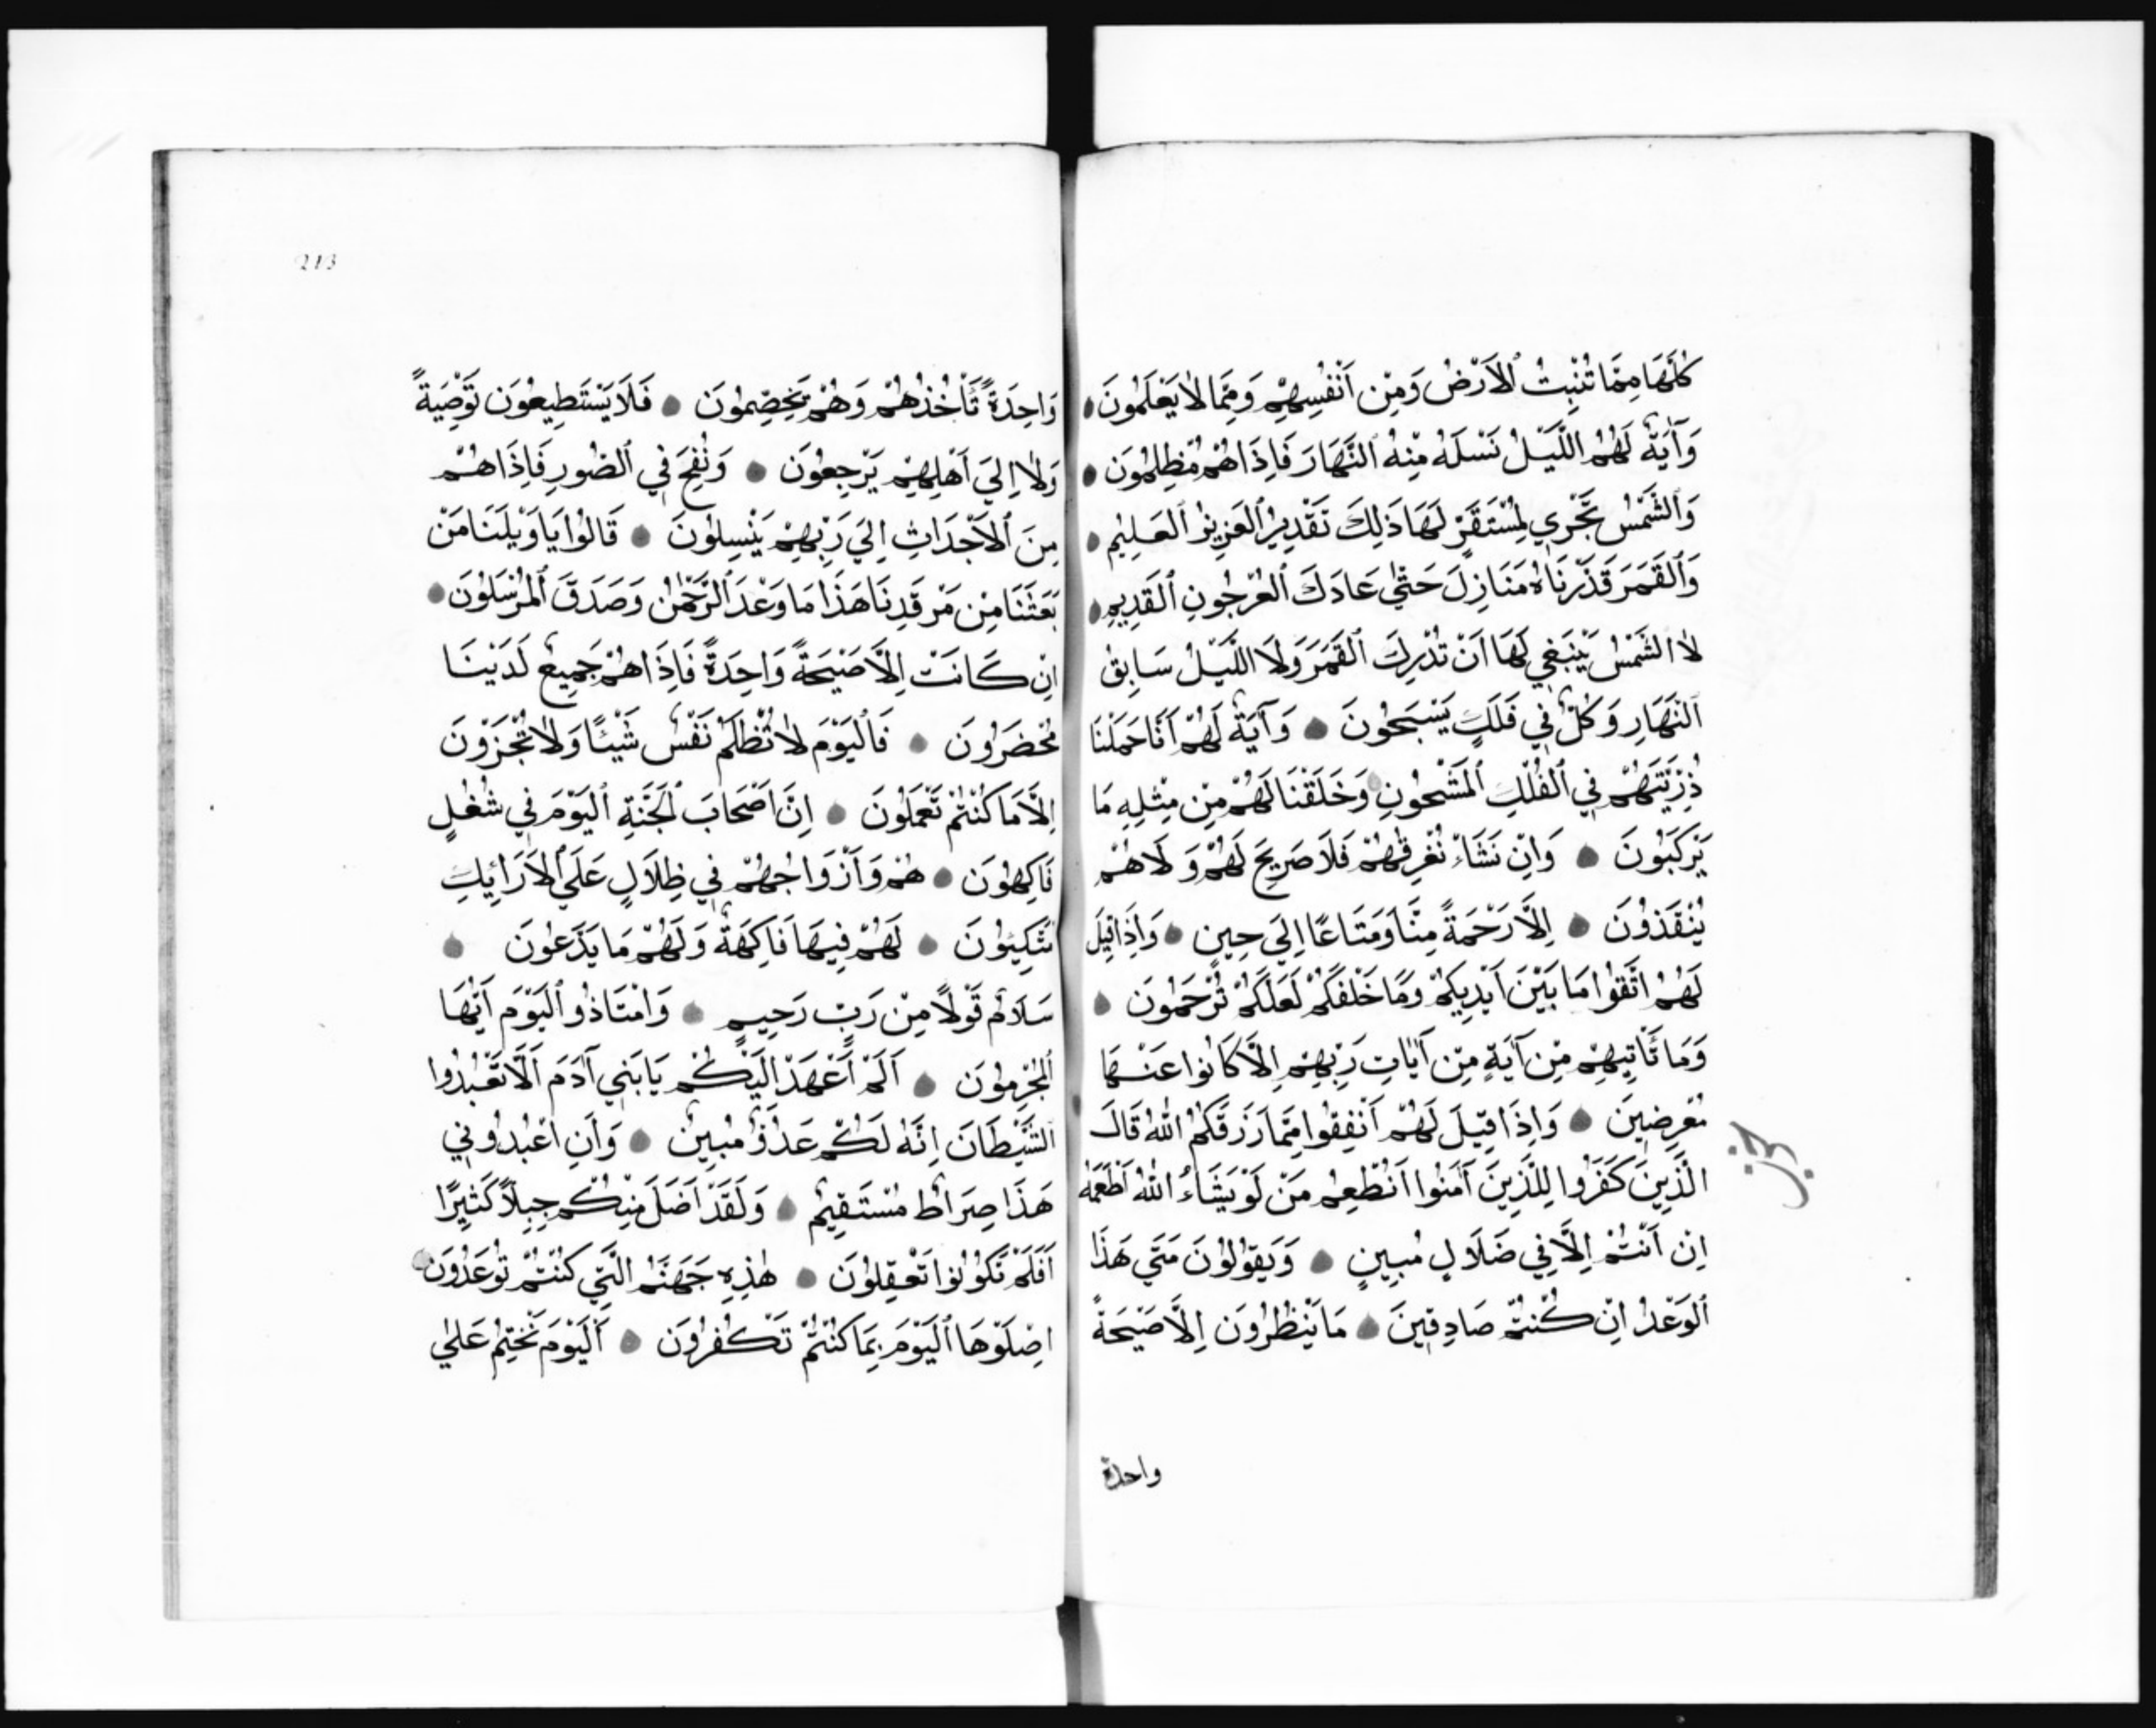 كُلَّهَا مِمَّا تُنْبِتُ الْاَرْضُ وَمِنْ اَنْفُسِهِمْ وَمِمَّا لَا يَعْلَمُونَ
وَآيَةٌ لَهُمُ اللَّيْلُ نَسْلَخُ مِنْهُ النَّهَارَ فَاِذَا هُمْ مُظْلِمُونَ
وَالشَّمْسُ تَجْرِي لِمُسْتَقَرٍّ لَهَا ذَلِكَ تَقْدِيرُ الْعَزِيزِ الْعَلِيمِ
وَالْقَمَرَ قَدَّرْنَاهُ مَنَازِلَ حَتَّى عَادَ كَالْعُرْجُونِ الْقَدِيمِ
لَا الشَّمْسُ يَنْبَغِي لَهَا اَنْ تُدْرِكَ الْقَمَرَ وَلَا اللَّيْلُ سَابِقُ
النَّهَارِ وَكُلٌّ فِي فَلَكٍ يَسْبَحُونَ وَآيَةٌ لَهُمْ اَنَّا حَمَلْنَا
ذُرِّيَّتَهُمْ فِي الْفُلْكِ الْمَشْحُونِ وَخَلَقْنَا لَهُمْ مِنْ مِثْلِهِ مَا
يَرْكَبُونَ وَاِنْ نَشَاْ نُغْرِقْهُمْ فَلَا صَرِيخَ لَهُمْ وَلَا هُمْ
يُنْقَذُونَ اِلَّا رَحْمَةً مِنَّا وَمَتَاعًا اِلَى حِينٍ وَاِذَا قِيلَ
لَهُمُ اتَّقُوا مَا بَيْنَ اَيْدِيكُمْ وَمَا خَلْفَكُمْ لَعَلَّكُمْ تُرْحَمُونَ
وَمَا تَاْتِيهِمْ مِنْ آيَةٍ مِنْ آيَاتِ رَبِّهِمْ اِلَّا كَانُوا عَنْهَا
مُعْرِضِينَ وَاِذَا قِيلَ لَهُمْ اَنْفِقُوا مِمَّا رَزَقَكُمُ اللهُ قَالَ
الَّذِينَ كَفَرُوا لِلَّذِينَ آمَنُوا اَنُطْعِمُ مَنْ لَوْ يَشَاءُ اللهُ اَطْعَمَهُ
اِنْ اَنْتُمْ اِلَّا فِي ضَلَالٍ مُبِينٍ وَيَقُولُونَ مَتَى هَذَا
الْوَعْدُ اِنْ كُنْتُمْ صَادِقِينَ مَا يَنْظُرُونَ اِلَّا صَيْحَةً
واحدة
213
وَاحِدَةً تَاْخُذُهُمْ وَهُمْ يَخِصِّمُونَ فَلَا يَسْتَطِيعُونَ تَوْصِيَةً
وَلَا اِلَى اَهْلِهِمْ يَرْجِعُونَ وَنُفِخَ فِي الصُّورِ فَاِذَا هُمْ
مِنَ الْاَجْدَاثِ اِلَى رَبِّهِمْ يَنْسِلُونَ قَالُوا يَا وَيْلَنَا مَنْ
بَعَثَنَا مِنْ مَرْقَدِنَا هَذَا مَا وَعَدَ الرَّحْمٰنُ وَصَدَقَ الْمُرْسَلُونَ
اِنْ كَانَتْ اِلَّا صَيْحَةً وَاحِدَةً فَاِذَا هُمْ جَمِيعٌ لَدَيْنَا
مُحْضَرُونَ فَالْيَوْمَ لَا تُظْلَمُ نَفْسٌ شَيْئًا وَلَا تُجْزَوْنَ
اِلَّا مَا كُنْتُمْ تَعْمَلُونَ اِنَّ اَصْحَابَ الْجَنَّةِ الْيَوْمَ فِي شُغُلٍ
فَاكِهُونَ هُمْ وَاَزْوَاجُهُمْ فِي ظِلَالٍ عَلَى الْاَرَائِكِ
مُتَّكِئُونَ لَهُمْ فِيهَا فَاكِهَةٌ وَلَهُمْ مَا يَدَّعُونَ
سَلَامٌ قَوْلًا مِنْ رَبٍّ رَحِيمٍ وَامْتَازُوا الْيَوْمَ اَيُّهَا
الْمُجْرِمُونَ اَلَمْ اَعْهَدْ اِلَيْكُمْ يَا بَنِي آدَمَ اَلَّا تَعْبُدُوا
الشَّيْطَانَ اِنَّهُ لَكُمْ عَدُوٌّ مُبِينٌ وَاَنِ اعْبُدُونِي
هَذَا صِرَاطٌ مُسْتَقِيمٌ وَلَقَدْ اَضَلَّ مِنْكُمْ جِبِلًّا كَثِيرًا
اَفَلَمْ تَكُونُوا تَعْقِلُونَ هٰذِهِ جَهَنَّمُ الَّتِي كُنْتُمْ تُوعَدُونَ
اِصْلَوْهَا الْيَوْمَ بِمَا كُنْتُمْ تَكْفُرُونَ اَلْيَوْمَ نَخْتِمُ عَلَى